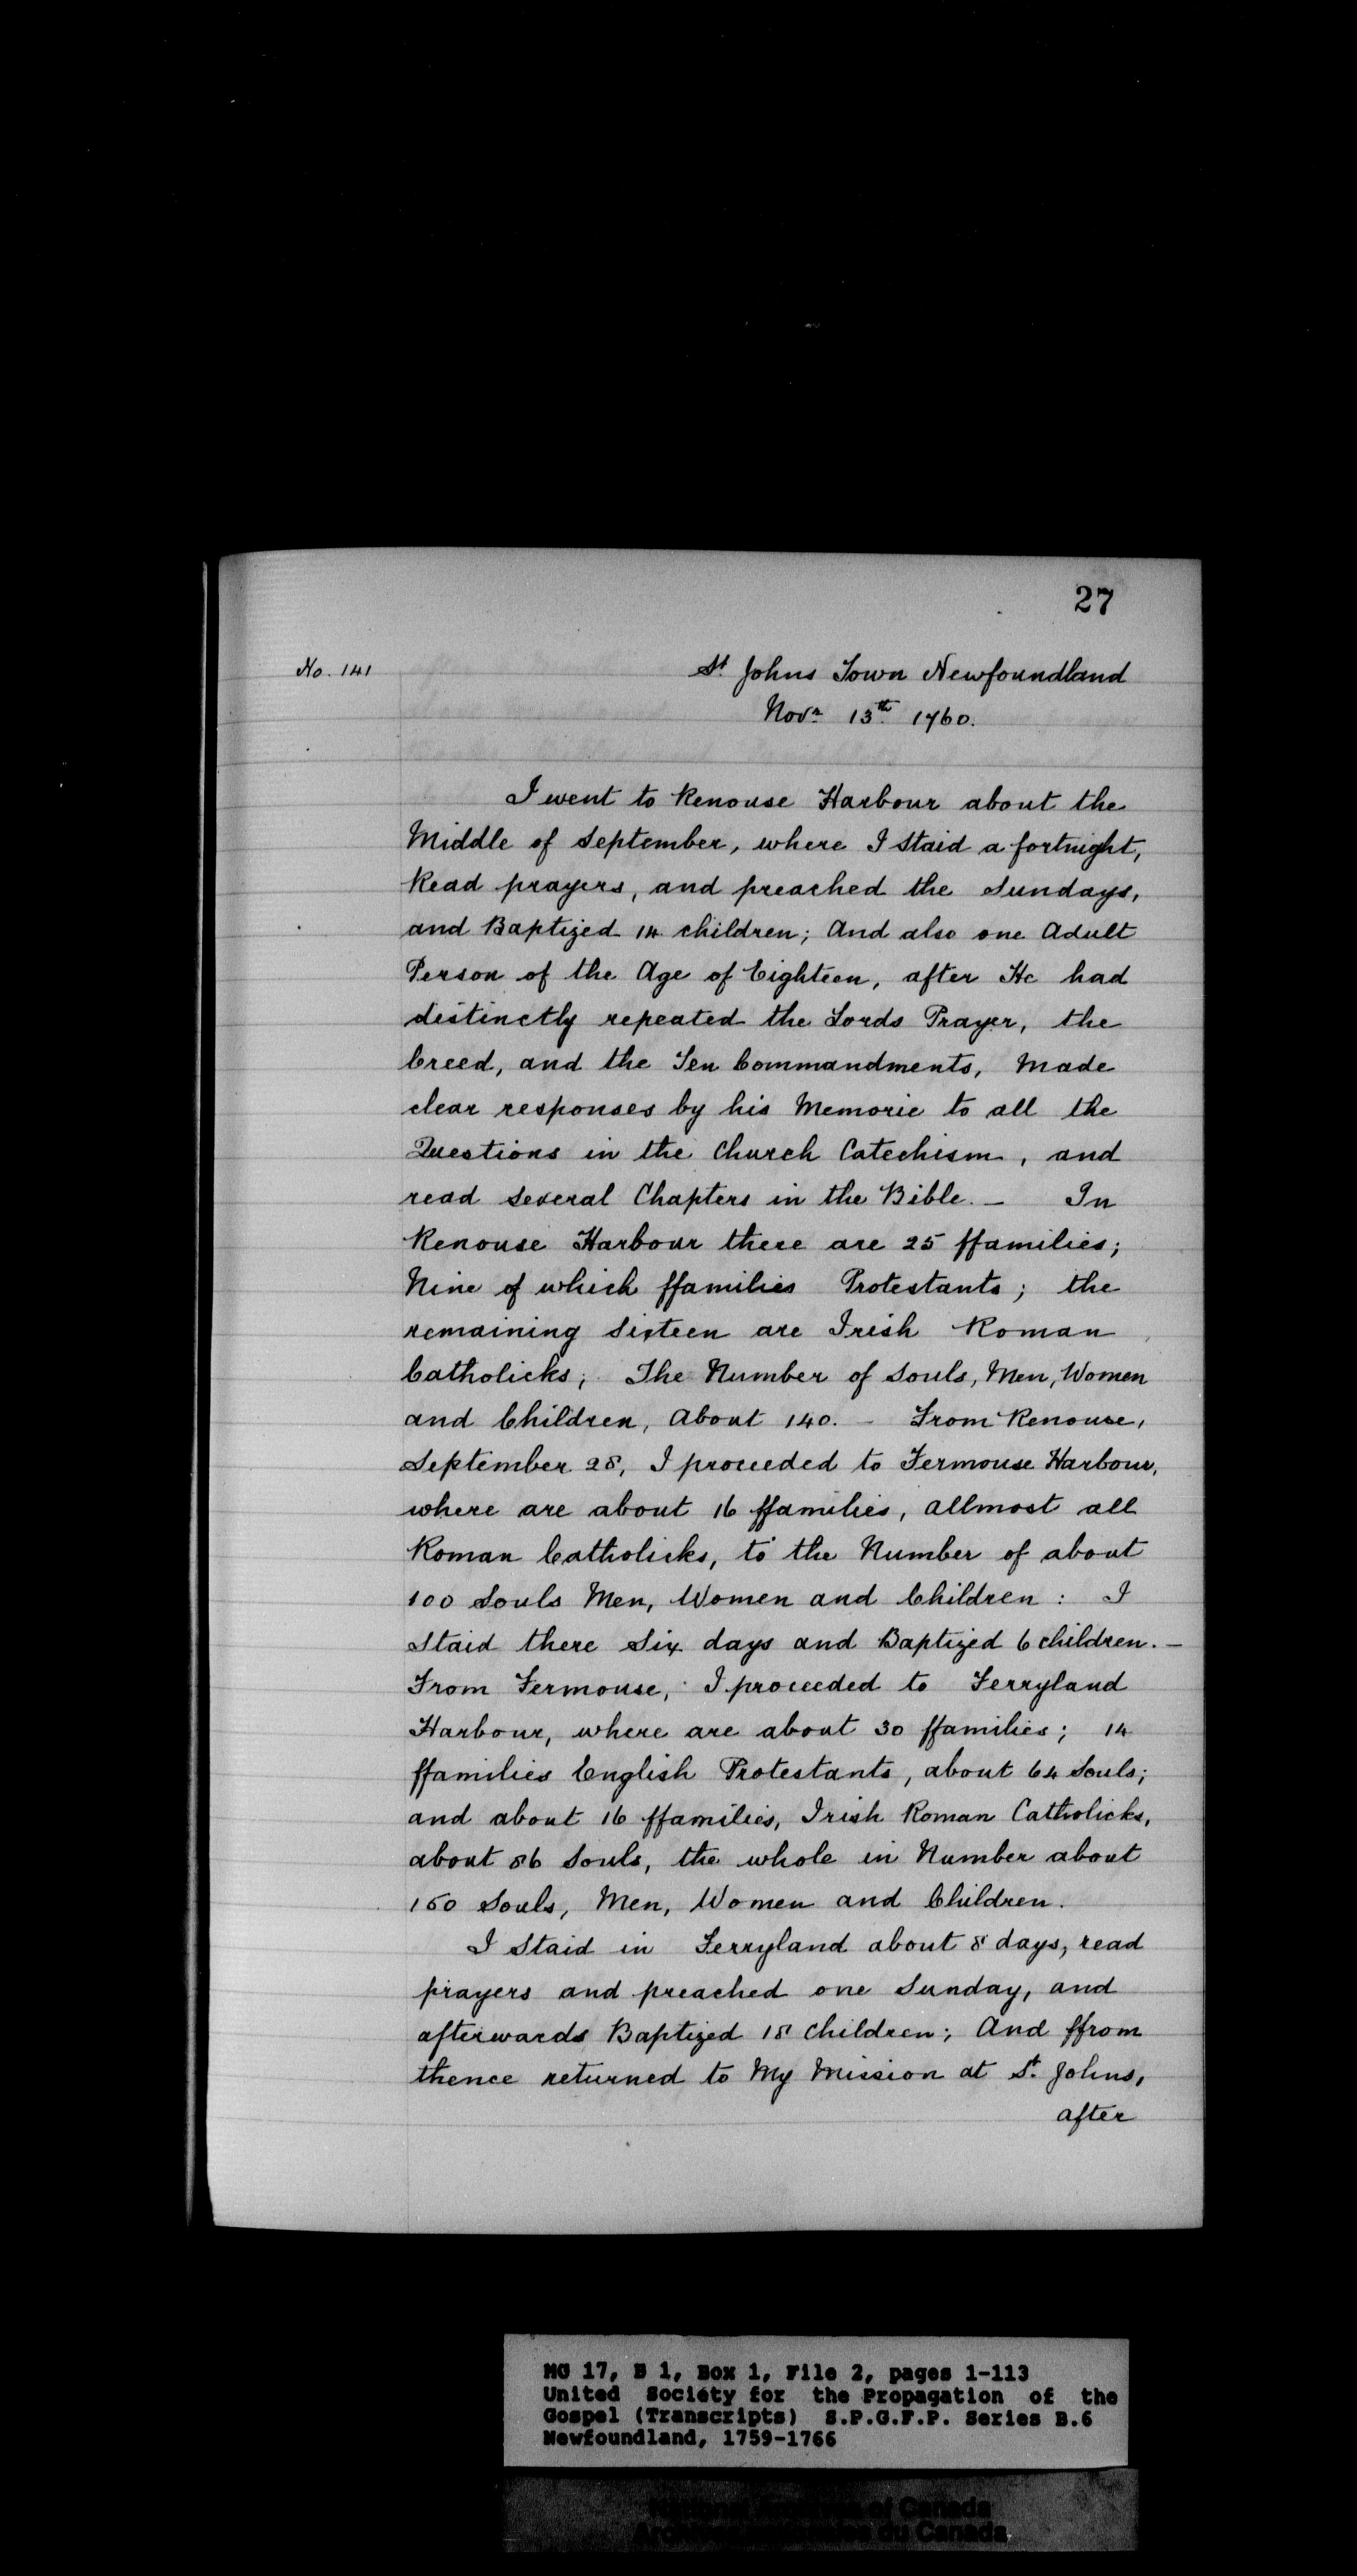 27
No. 141
St. Johns Town Newfoundland
Novr. 13th. 1760.
I went to Renouse Harbour about the
Middle of September, where I staid a fortnight,
Read prayers, and preached the Sundays,
and Baptized 14 children; And also one Adult
Person of the Age of Eighteen, after He had
distinctly repeated the Lords Prayer, the
Creed, and the Ten Commandments, Made
clear responses by his Memorie to all the
Questions in the Church Catechism, and
read several Chapters in the Bible. — In
Renouse Harbour there are 25 ffamilies;
Nine of which ffamilies Protestants; the
remaining Sixteen are Irish Roman
Catholicks; The Number of Souls, Men, Women
and Children, About 140. — From Renouse,
September 28, I proceeded to Fermouse Harbour,
where are about 16 ffamilies, allmost all
Roman Catholicks, to the Number of about
100 Souls Men, Women and Children: I
Staid there Six days and Baptized 6 children. —
From Fermouse, I proceeded to Ferryland
Harbour, where are about 30 ffamilies; 14
ffamilies English Protestants, about 64 Souls;
and about 16 ffamilies, Irish Roman Catholicks,
about 86 Souls, the whole in Number about
150 Souls, Men, Women and Children.
I Staid in Ferryland about 8 days, read
prayers and preached one Sunday, and
afterwards Baptized 18 children; And ffrom
thence returned to My Mission at St. Johns,
after
MG 17, B 1, Box 1, File 2, pages 1-113
United Society for the Propagation of the
Gospel (Transcripts) S.P.G.F.P. Series B.6
Newfoundland, 1759-1766
National Archives of Canada
Archives nationales du Canada